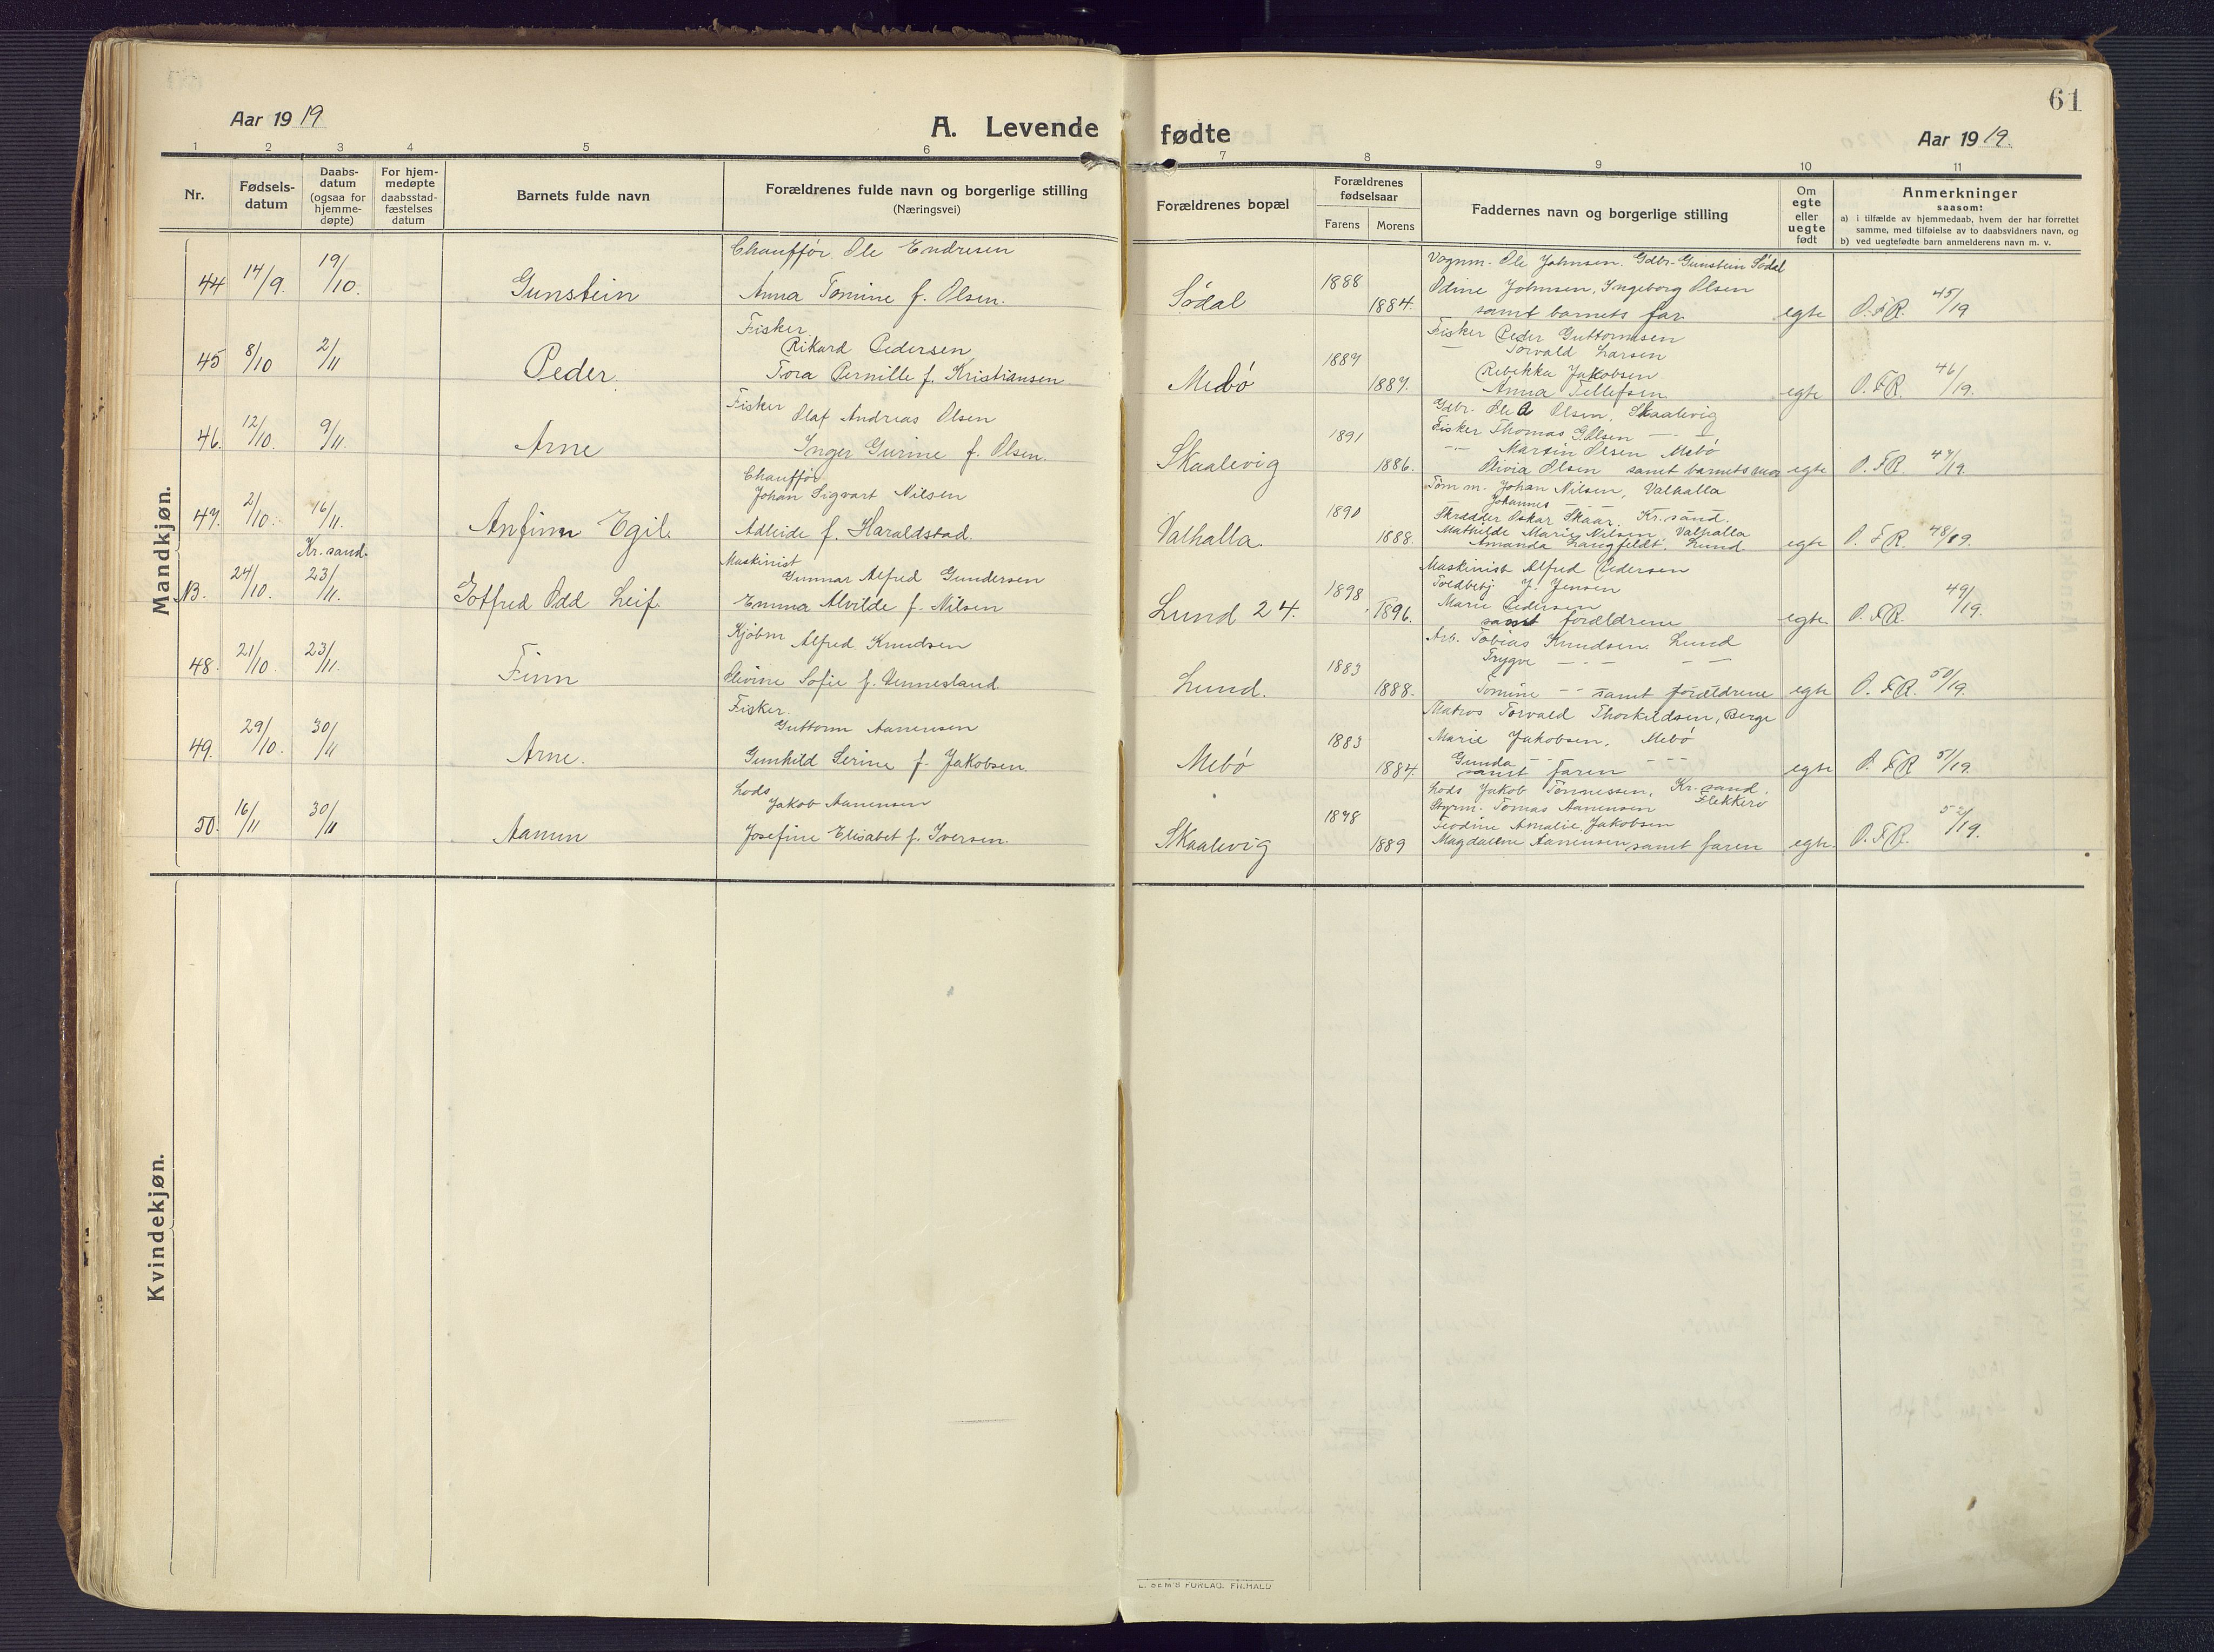 61
Aar 1919
A. Levende fødte
Aar 1919.
1 2 3 4 5 6 7 8 9 10 11
Nr.
Fødsels-
datum
Daabs-
datum
(ogsaa for
hjemme-
døpte)
For hjem-
medøpte
daabsstad-
fæstelses
datum
Barnets fulde navn
Forældrenes fulde navn og borgerlige stilling
(Næringsvei)
Forældrenes bopæl
Forældrenes
fødselsaar
Farens Morens
Faddernes navn og borgerlige stilling
Om
egte
eller
uegte
født
Anmerkninger
saasom:
a) i tilfælde av hjemmedaab, hvem der har forrettet
samme, med tilføielse av to daabsvidners navn, og
b) ved uegtefødte barn anmelderens navn m. v.
Mandkjøn.
44 14/9. 19/10. Gunstein
Chauffør Ole Endresen
Anna Tomine f. Olsen.
Sødal 1888 1884.
Vognm. Ole Johnsen. Gdbr. Gunstein Sødal
Odine Johnsen, Ingeborg Olsen
samt barnets far.
egte O.F.R. 45/19
45 8/10 2/11 Peder.
Fisker
Rikard Pedersen
Tora Pernille f. Kristiansen
Mebø 1887 1887.
Fisker Peder Guttormsen
— Torvald Larsen
Rebekka Jakobsen
Anna Tellefsen
egte O.F.R. 46/19.
46. 12/10. 9/11. Arne
Fisker Olaf Andreas Olsen
Inger Gurine f. Olsen.
Skaalevig 1891 1886.
Gdbr. Ole A Olsen, Skaalevig
Fisker Thomas G. Olsen — —
— Martin Olsen Mebø
Olivia Olsen samt barnets mor
egte O.F.R. 47/19.
47. 2/10. 16/11. Anfinn Egil.
Chauffør
Johan Sigvart Nilsen
Adleide f. Haraldstad.
Valhalla. 1890 1888.
Tømm. Johan Nilsen, Valhalla
Johannes — —
Skrædder Oskar Skaar. Kr.sand.
Mathilde Marie Nilsen, Valhalla
Amanda Langfeldt. Lund
egte O.F.R. 48/19.
Kr.sand.
N3. 24/10. 23/11. Gotfred Odd Leif.
Maskinist
Gunnar Alfred Gundersen
Emma Alvilde f. Nilsen
Lund 24. 1898 1896.
Maskinist Alfred Pedersen
Toldbetj. J. Jensen
Marie Pedersen
samt forældrene
egte. O.F.R. 49/19.
48. 21/10. 23/11. Finn
Kjøbm Alfred Knudsen
Elevine Sofie f. Vennesland.
Lund. 1883 1888.
Arb. Tobias Knudsen. Lund
Trygve — — — —
Tomine — — samt forældrene
egte O.F.R. 50/19.
49. 29/10. 30/11 Arne.
Fisker.
Guttorm Aanensen
Gunhild Serine f. Jakobsen.
Mebø 1883 1884.
Matros Torvald Thorkildsen, Berge
Marie Jakobsen, Mebø
Gunda — — — —
samt faren
egte O.F.R 51/19.
50. 16/11 30/11 Aanun
Lods
Jakob Aanensen
Josefine Elisabet f. Iversen.
Skaalevig 1878 1889
Lods Jakob Tønnessen, Kr.sand.
Styrm. Tomas Aanensen Flekkerø
Teodine Amalie Jakobsen
Magdalene Aanensen samt faren
egte. O.F.R. 52/19.
Kvindekjøn.
E. SEM'S FORLAG. FR.HALD